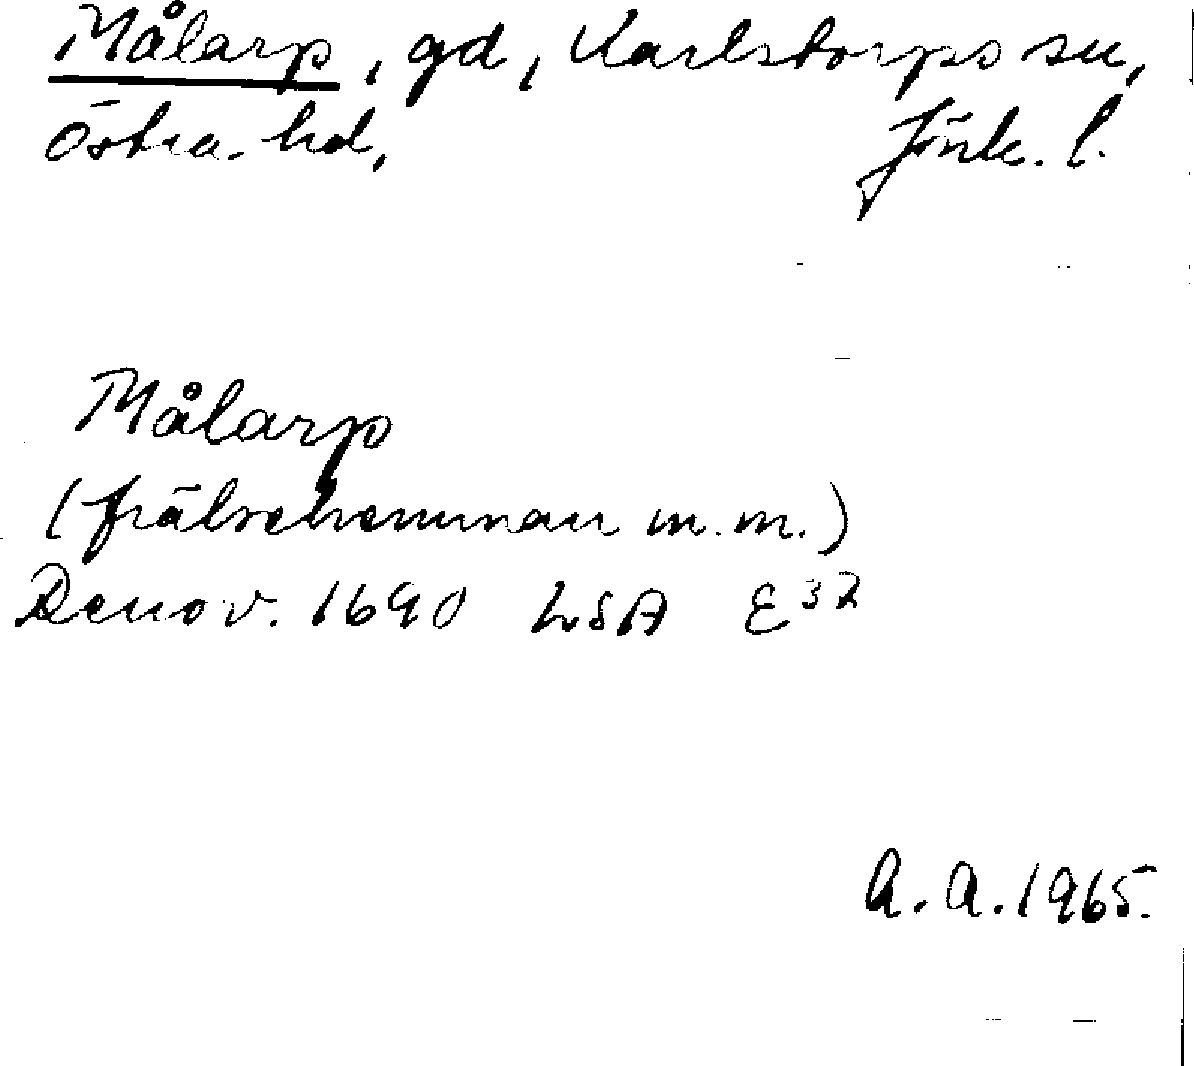 Målarp, gd, Karlstorps sn,
Östra hd, Jönk. l.
Målarp
(frälsehemman m. m.)
Renov. 1690 LSA E 32
A. A. 1965.